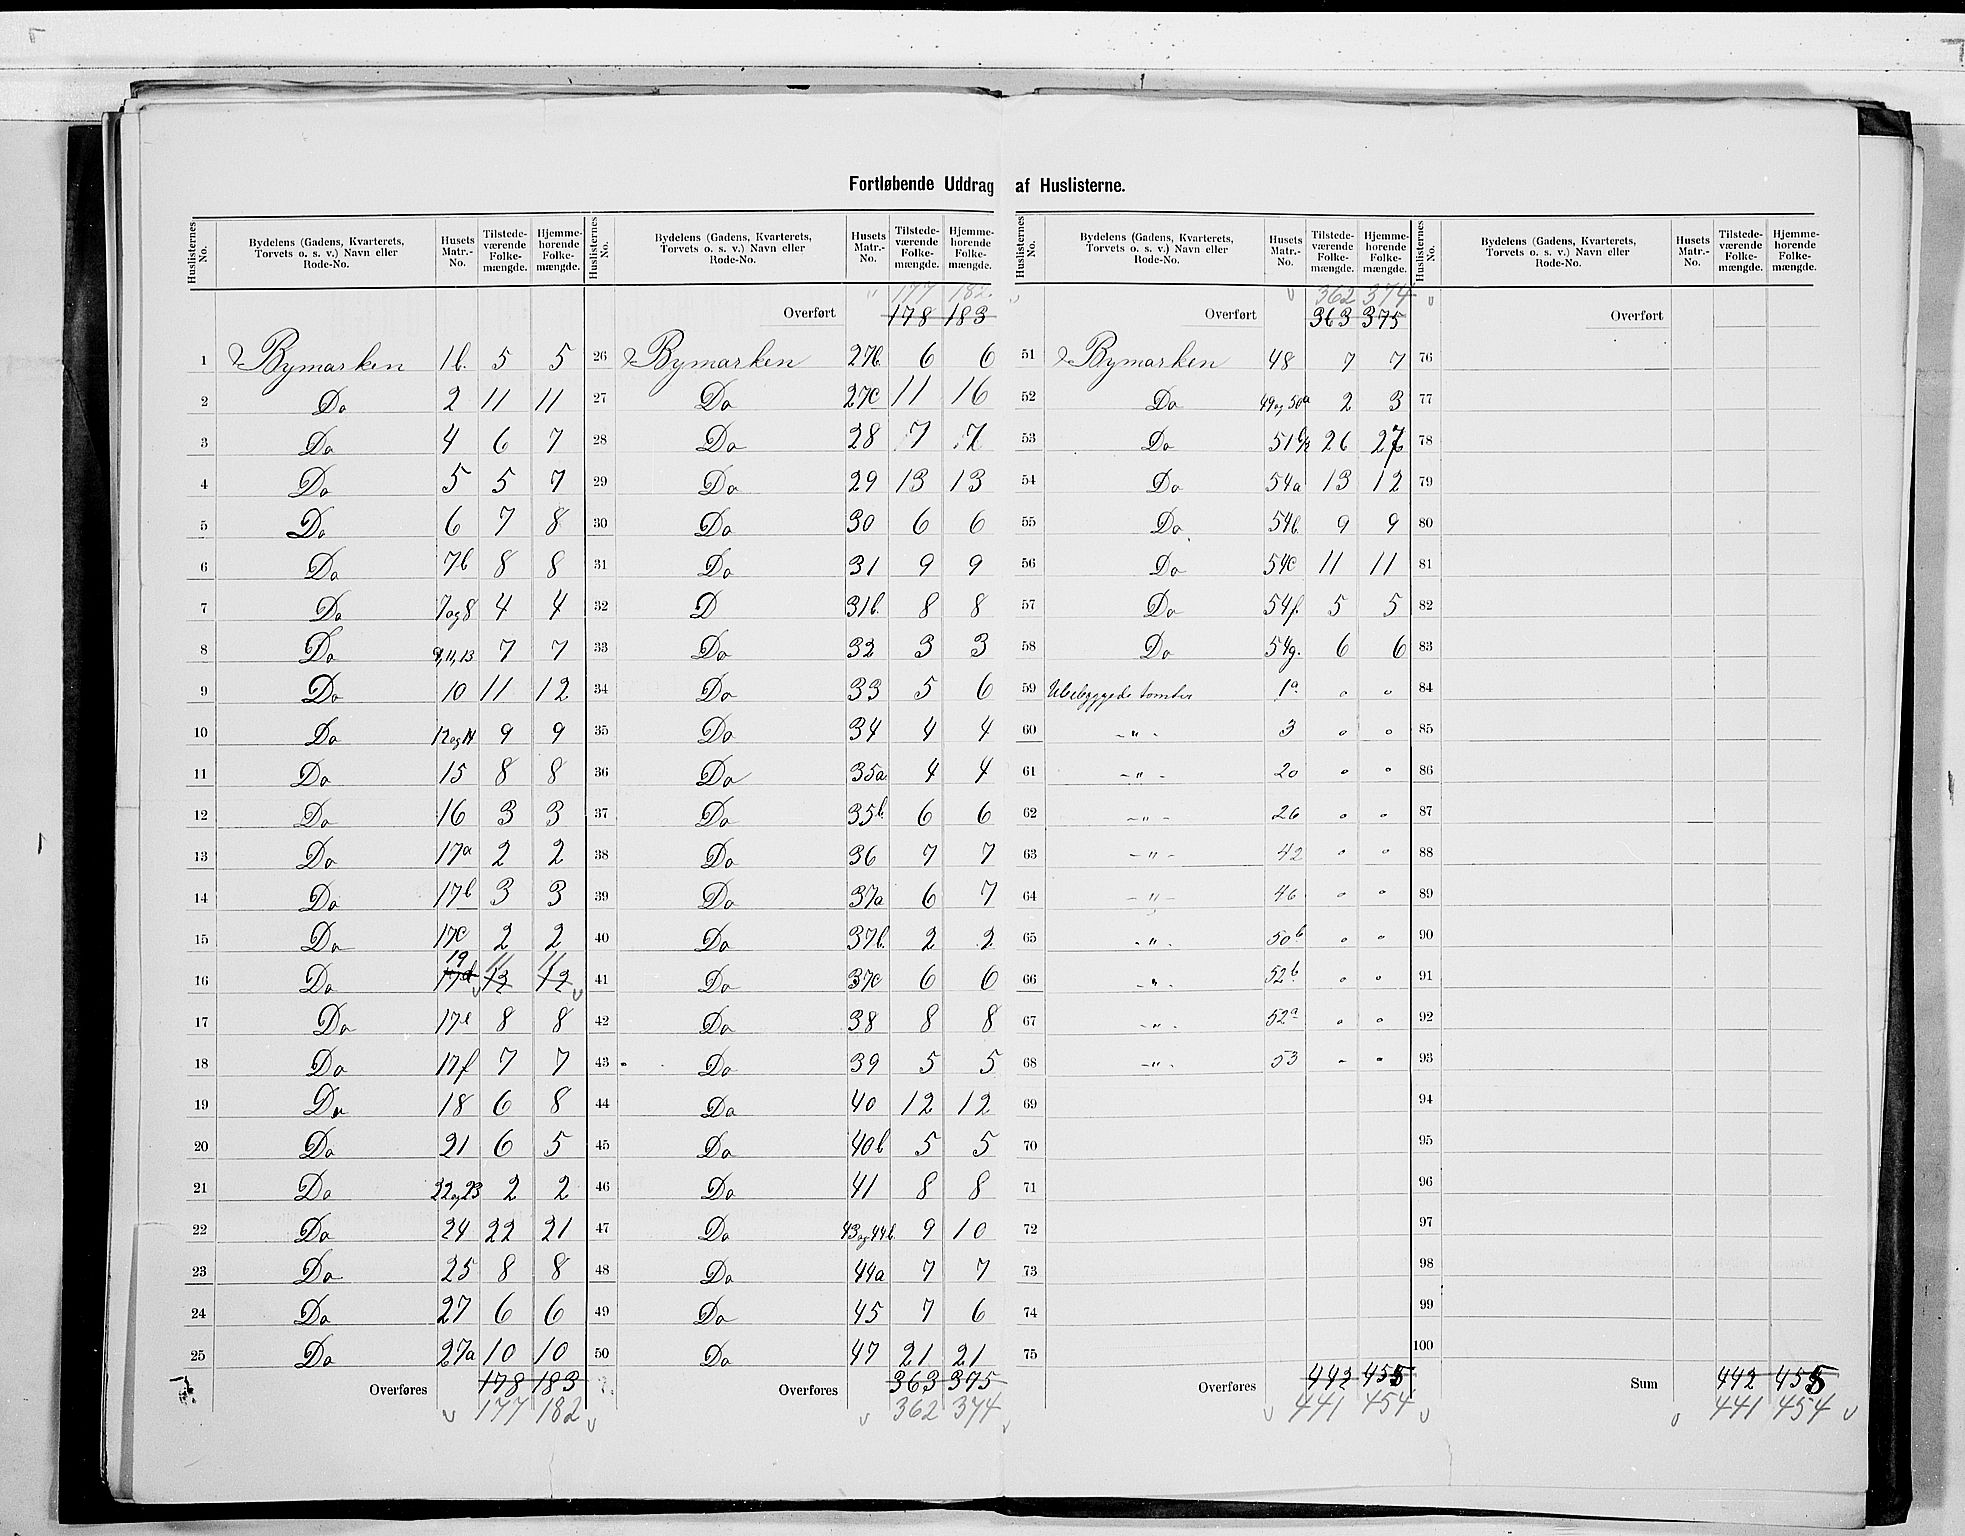 Fortløbende Uddrag af Huslisterne.
Huslisternes No. | Bydelens (Gadens, Kvarterets, Torvets o. s. v.) Navn eller Rode-No. | Husets Matr.-No. | Tilstedeværende Folkemængde. | Hjemmehorende Folkemængde.
1 Bymarken 1b. 5 5
2 Do 2 11 11
3 Do 4 6 7
4 Do 5 5 7
5 Do 6 7 8
6 Do 7b 8 8
7 Do 7og8 4 4
8 Do 9,11,13 7 7
9 Do 10 11 12
10 Do 12og14 9 9
11 Do 15 8 8
12 Do 16 3 3
13 Do 17a 2 2
14 Do 17b 3 3
15 Do 17c 2 2
16 Do 19 17d 11 12 11 12
17 Do 17e 8 8
18 Do 17f 7 7
19 Do 18 6 8
20 Do 21 6 5
21 Do 22og23 2 2
22 Do 24 22 21
23 Do 25 8 8
24 Do 27 6 6
25 Do 27a 10 10
Overføres 178 183
177 182
Huslisternes No. | Bydelens (Gadens, Kvarterets, Torvets o. s. v.) Navn eller Rode-No. | Husets Matr.-No. | Tilstedeværende Folkemængde. | Hjemmehorende Folkemængde.
177 182.
Overført 178 183
26 Bymarken 27b. 6 6
27 Do 27c 11 16
28 Do 28 7 7
29 Do 29 13 13
30 Do 30 6 6
31 Do 31 9 9
32 D 31b. 8 8
33 Do 32 3 3
34 Do 33 5 6
35 Do 34 4 4
36 Do 35a 4 4
37 Do 35b 6 6
38 Do 36 7 7
39 Do 37a 6 7
40 Do 37b. 2 2
41 Do 37c 6 6
42 Do 38 8 8
43 Do 39 5 5
44 Do 40 12 12
45 Do 40b 5 5
46 Do 41 8 8
47 Do 43og44b. 9 10
48 Do 44a 7 7
49 Do 45 7 6
50 Do 47 21 21
Overføres 363 375
362 374
Huslisternes No. | Bydelens (Gadens, Kvarterets, Torvets o. s. v.) Navn eller Rode-No. | Husets Matr.-No. | Tilstedeværende Folkemængde. | Hjemmehorende Folkemængde.
362 374
Overført 363 375
51 Bymarken 48 7 7
52 Do 49og50a 2 3
53 Do 51 26 27
54 Do 54a 13 12
55 Do 54b. 9 9
56 Do 54c 11 11
57 Do 54f. 5 5
58 Do 54g. 6 6
59 Ubebyggede tomter 1a. 0 0
60 -"- 3 0 0
61 -"- 20 0 0
62 -"- 26 0 0
63 -"- 42 0 0
64 -"- 46 0 0
65 -"- 50b 0 0
66 -"- 52b 0 0
67 -"- 52a 0 0
68 -"- 53 - 0
69
70
71
72
73
74
75
Overføres 442 455
441 454
Huslisternes No. | Bydelens (Gadens, Kvarterets, Torvets o. s. v.) Navn eller Rode-No. | Husets Matr.-No. | Tilstedeværende Folkemængde. | Hjemmehorende Folkemængde.
Overført
76
77
78
79
80
81
82
83
84
85
86
87
88
89
90
91
92
93
94
95
96
97
98
99
100
Sum 442 455
441 454